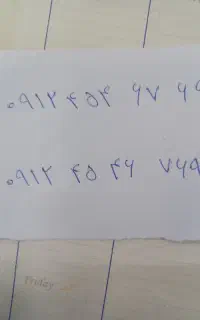 ۰۹۱۲ ۴۵۴ ۶۷ ۶۹
۰۹۱۲ ۴۵ ۴۶ ۷۶۹
Friday